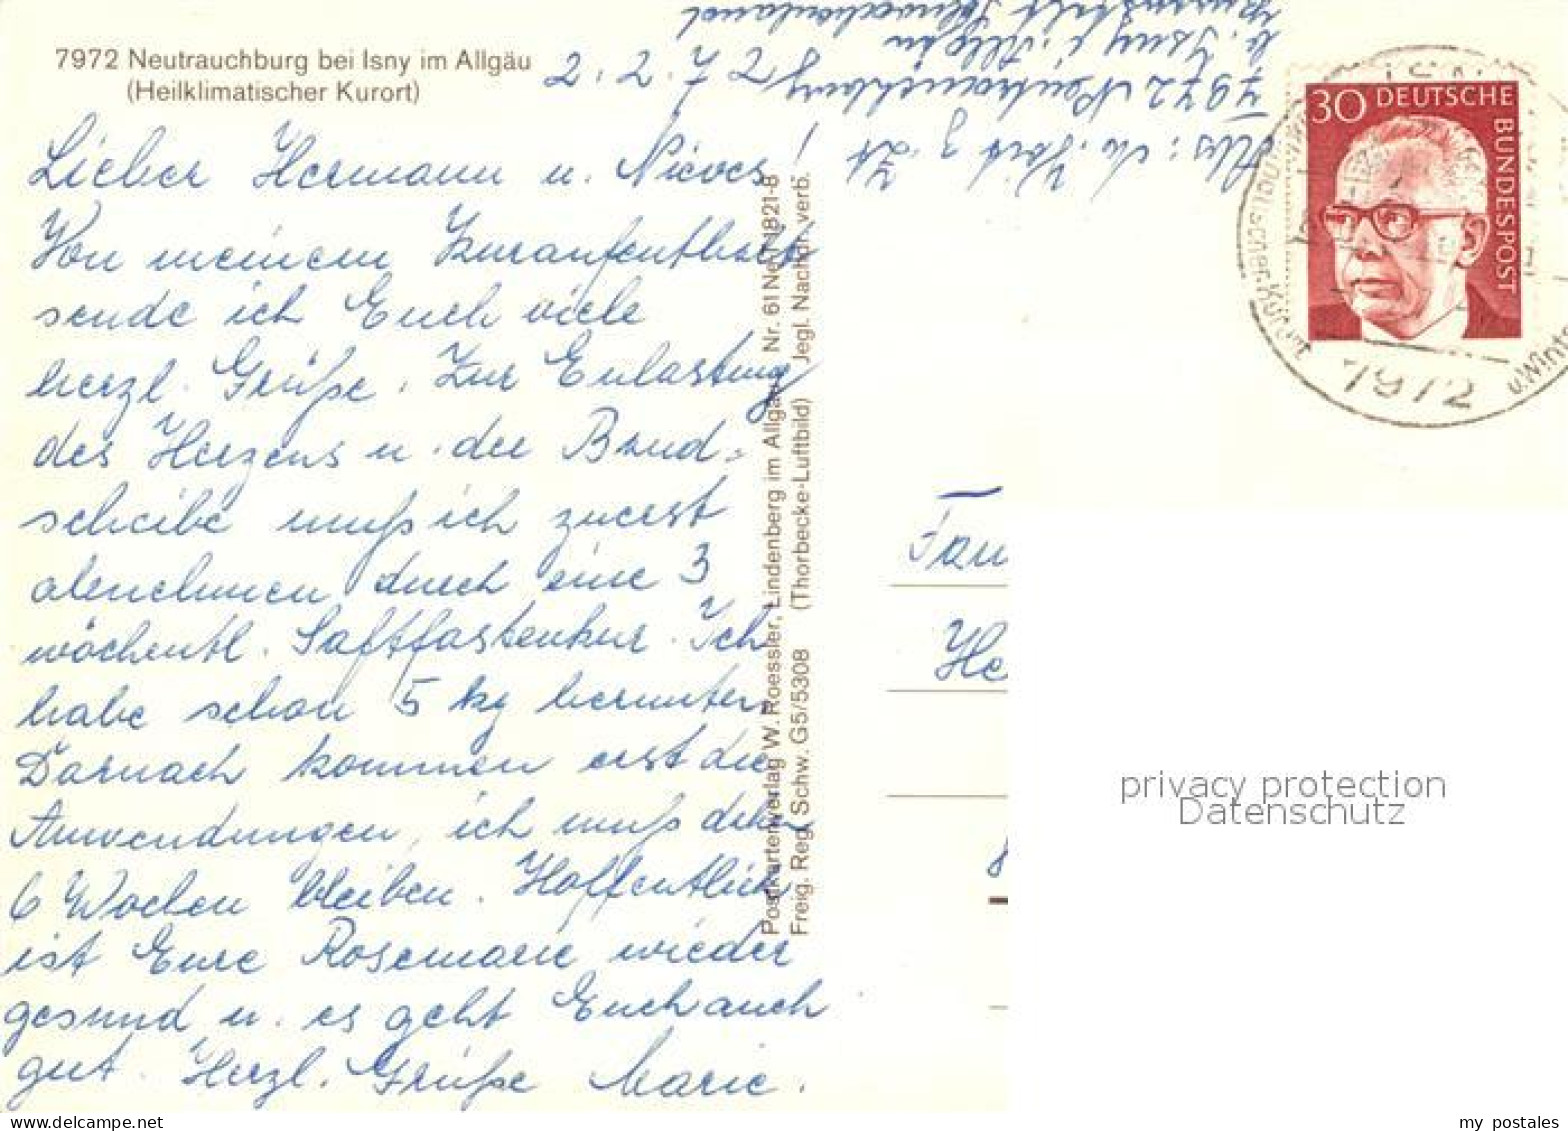 7972 Neutrauchburg bei Isny im Allgäu
(Heilklimatischer Kurort)
2.2.72
Lieber Hermann u. Nieves!
Von meinem Kuraufenthalt
sende ich Euch viele
herzl. Grüße. Zur Enlastung
des Herzens u. der Band=
scheibe muß ich zuerst
abnehmen durch eine 3
wöchentl. Saftfastenkur. Ich
habe schon 5 kg herunter.
Darnach kommen erst die
Anwendungen, ich muß daher
6 Wochen bleiben. Hoffentlich
ist Eure Rosemarie wieder
gesund u. es geht Euch auch
gut. Herzl. Grüße Marie.
Abs: z. Zt
7972 Neutrauchburg
b. Isny i. Allgäu
Schwabenland
Postkartenverlag W. Roessler, Lindenberg im Allgäu Nr. 61 Ne 1821-8
Freig. Reg. Schw. G5/5308 (Thorbecke-Luftbild) Jegl. Nachdr. verb.
30 DEUTSCHE
BUNDESPOST
ISN
7972
Fam
He
privacy protection
Datenschutz
my postales